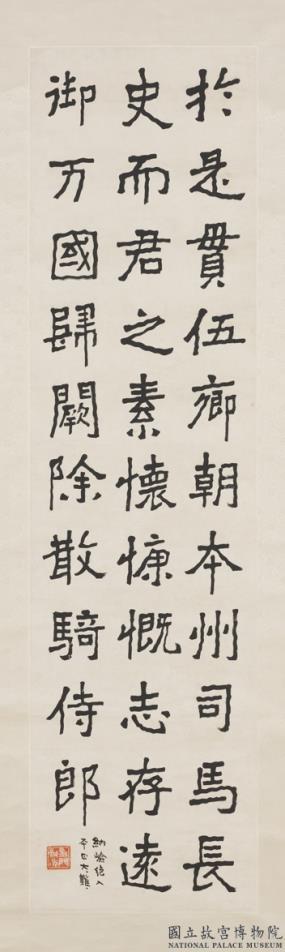 於是貫伍鄉朝本州司馬長
史而君之素懷慷慨志存遠
御万國歸闕除散騎侍郎
國立故宮博物院
NATIONAL PALACE MUSEUM